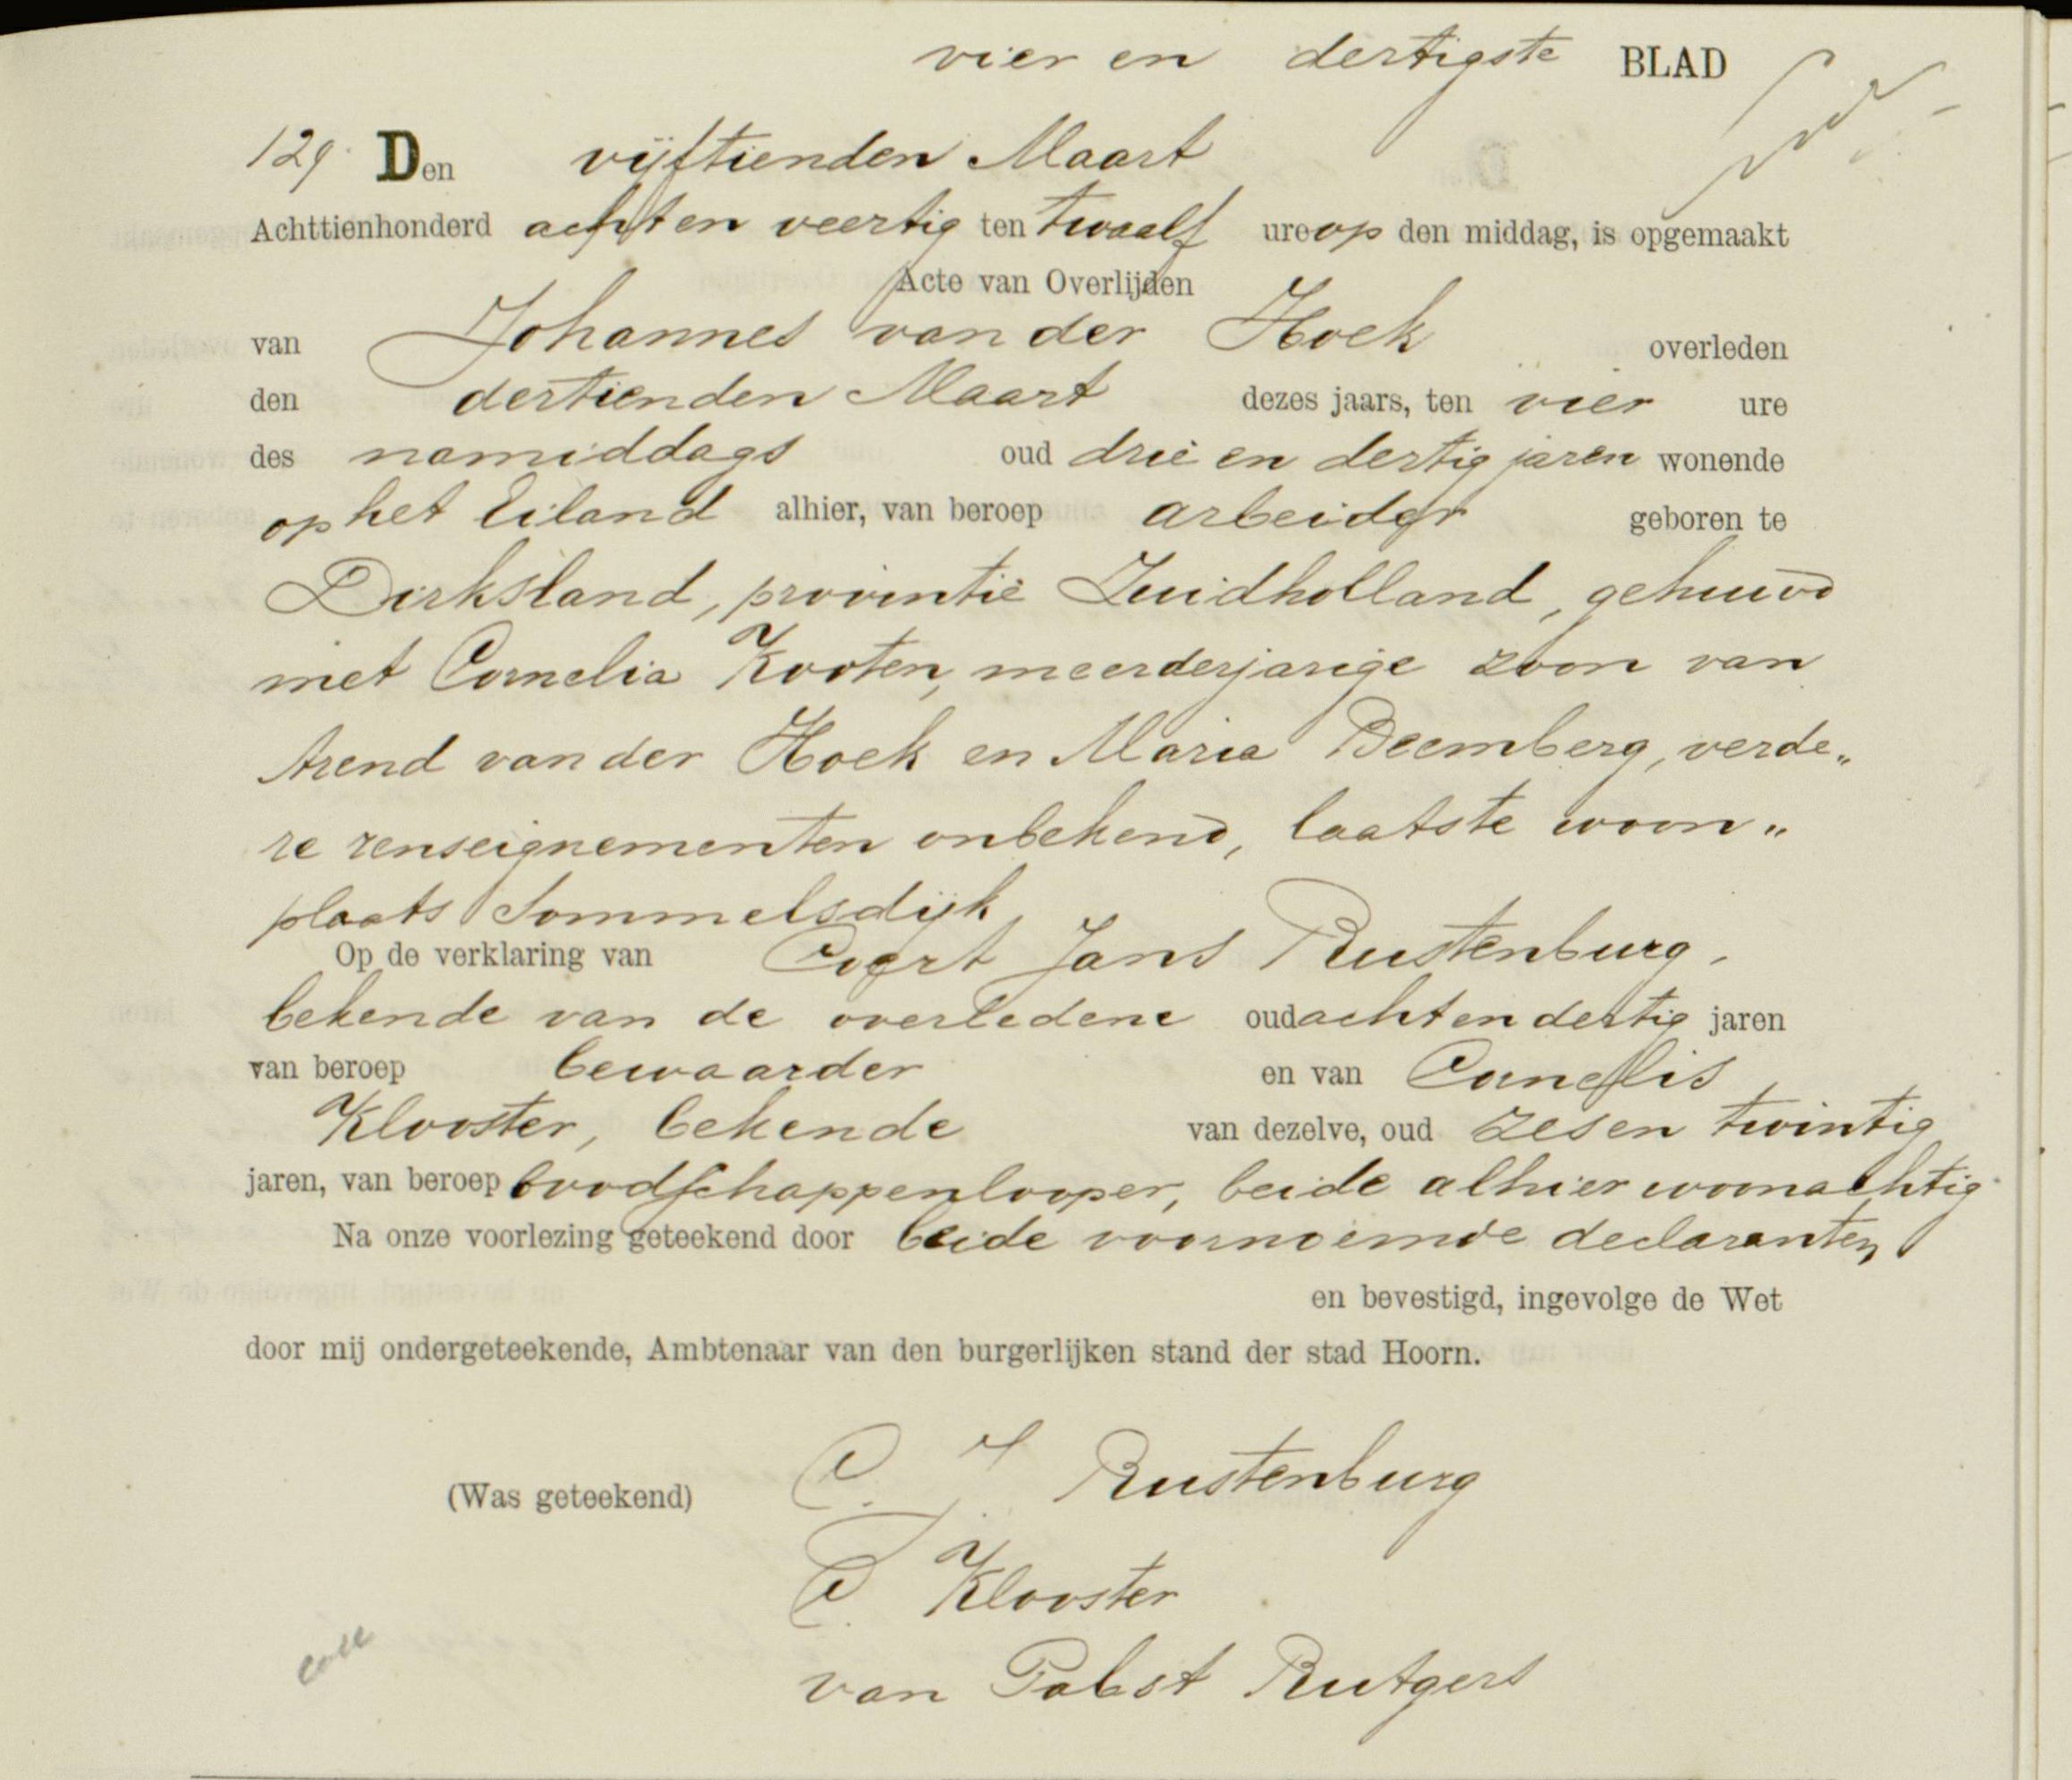 vier en dertigste BLAD
129. Den vijftienden Maart
Achttienhonderd acht en veertig ten twaalf ure op den middag, is opgemaakt
Acte van Overlijden
van Johannes van der Hoek overleden
den dertienden Maart dezes jaars, ten vier ure
des namiddags oud drie en dertig jaren wonende
op het Eiland alhier, van beroep arbeider geboren te
Dirksland, provintie Zuidholland, gehuwd
met Cornelia Kooten, meerderjarige zoon van
Arend van der Hoek en Maria Beemberg, verde„
re renseignementen onbekend, laatste woon„
plaats Sommelsdijk
Op de verklaring van Evert Jans Rustenburg,
bekende van de overledene oud acht en dertig jaren
van beroep bewaarder en van Cornelis
Klooster, bekende van dezelve, oud zes en twintig
jaren, van beroep boodschappenlooper, beide alhier woonachtig
Na onze voorlezing geteekend door beide voornoemde declaranten
en bevestigd, ingevolge de Wet
door mij ondergeteekende, Ambtenaar van den burgerlijken stand der stad Hoorn.
(Was geteekend) E. J. Rustenburg
C. Klooster
van Pabst Rutgers